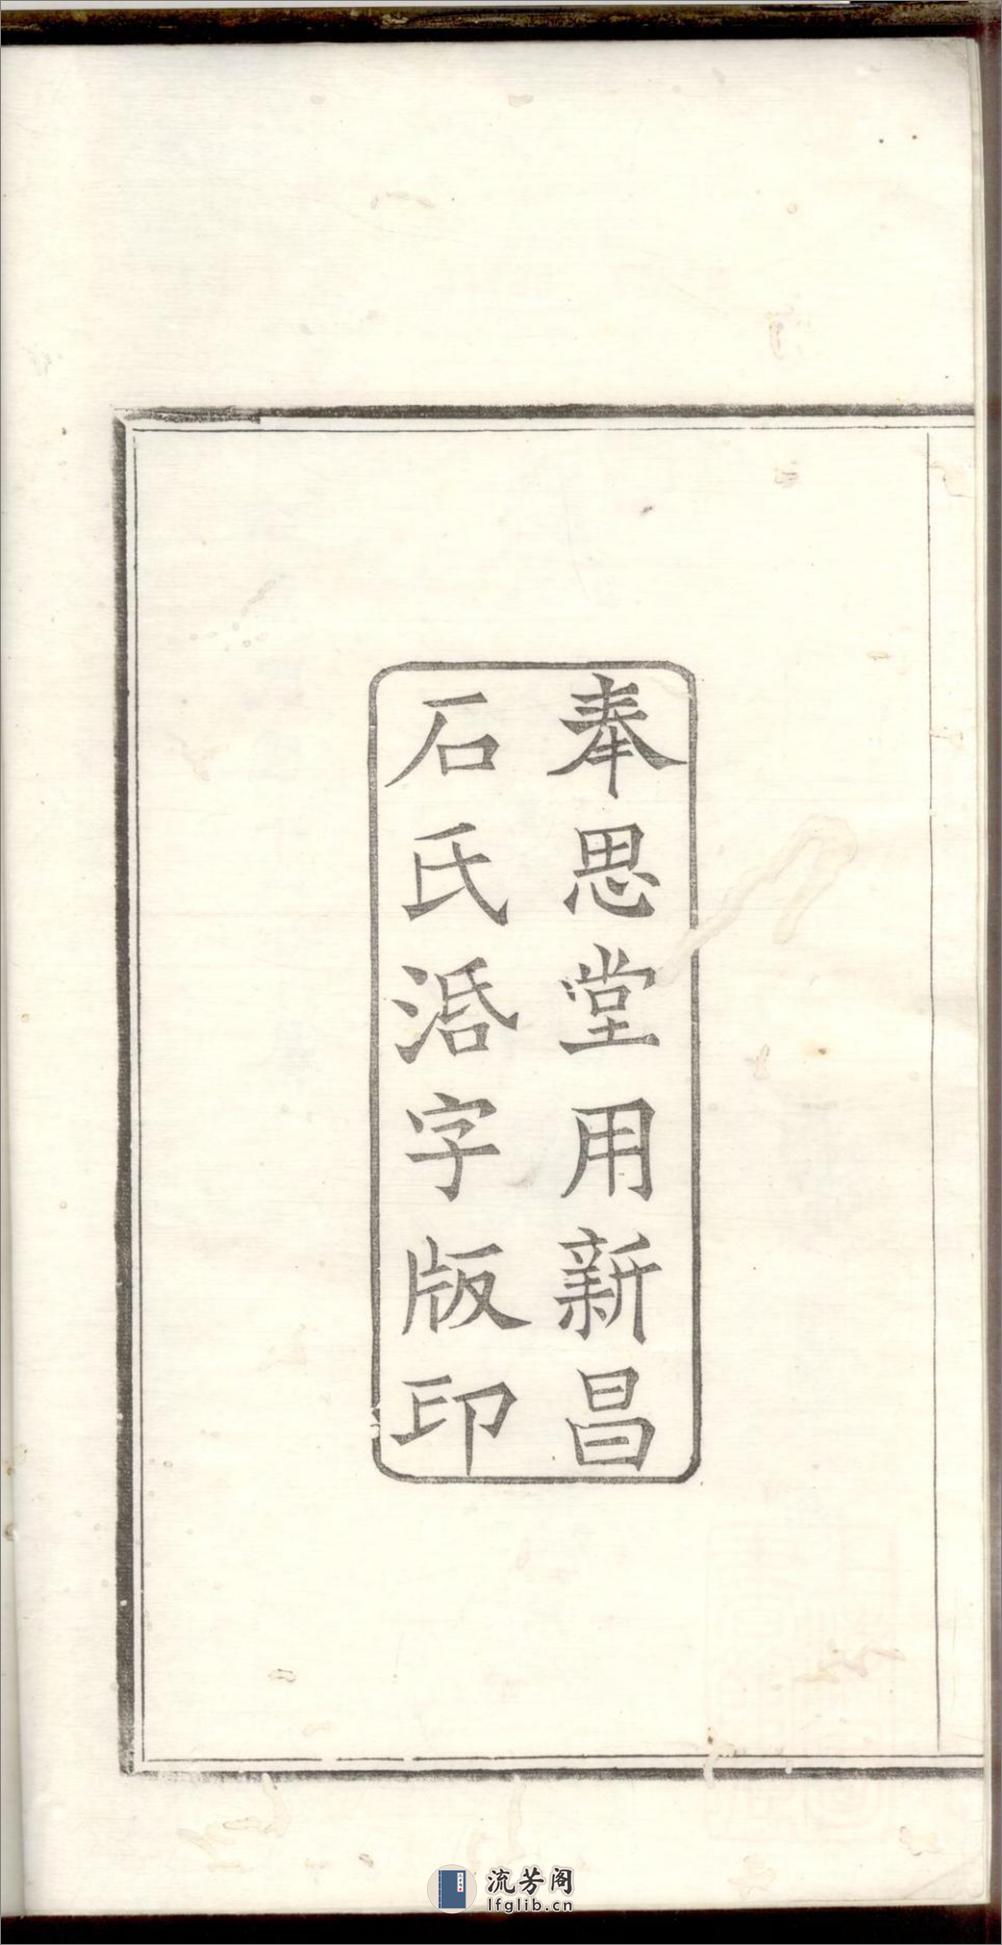 奉思堂用新昌
石氏活字版印
流芳阁
lfglib.cn